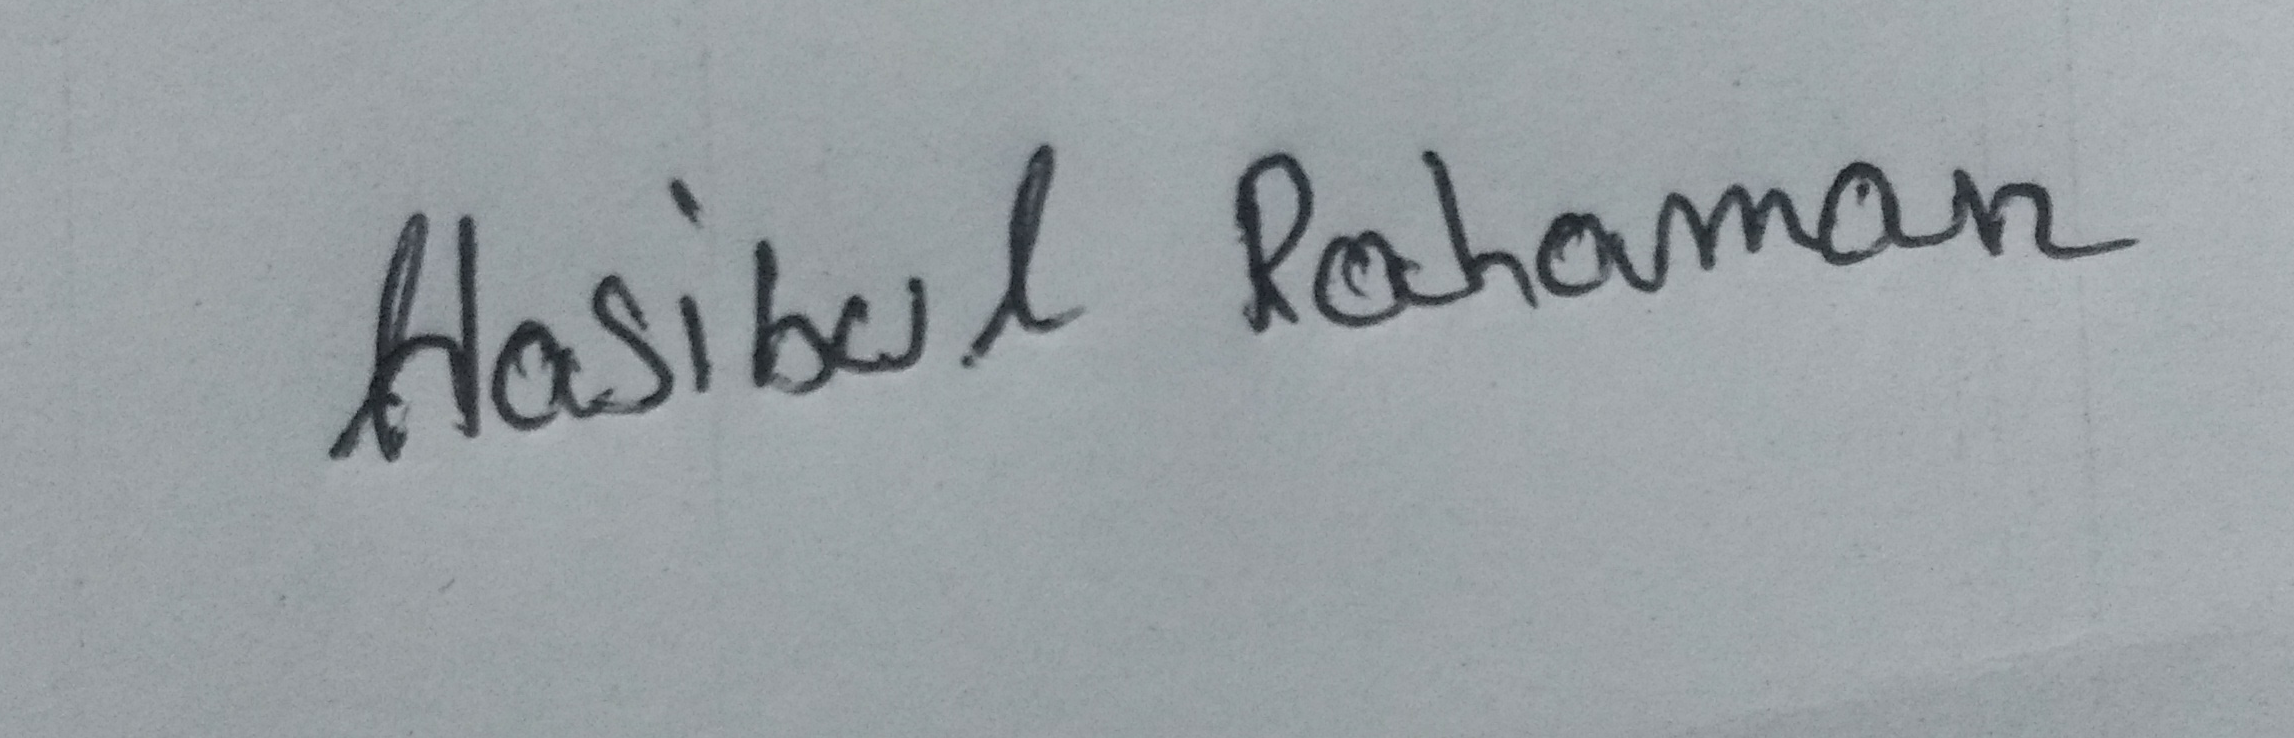 Hasibul Rahaman